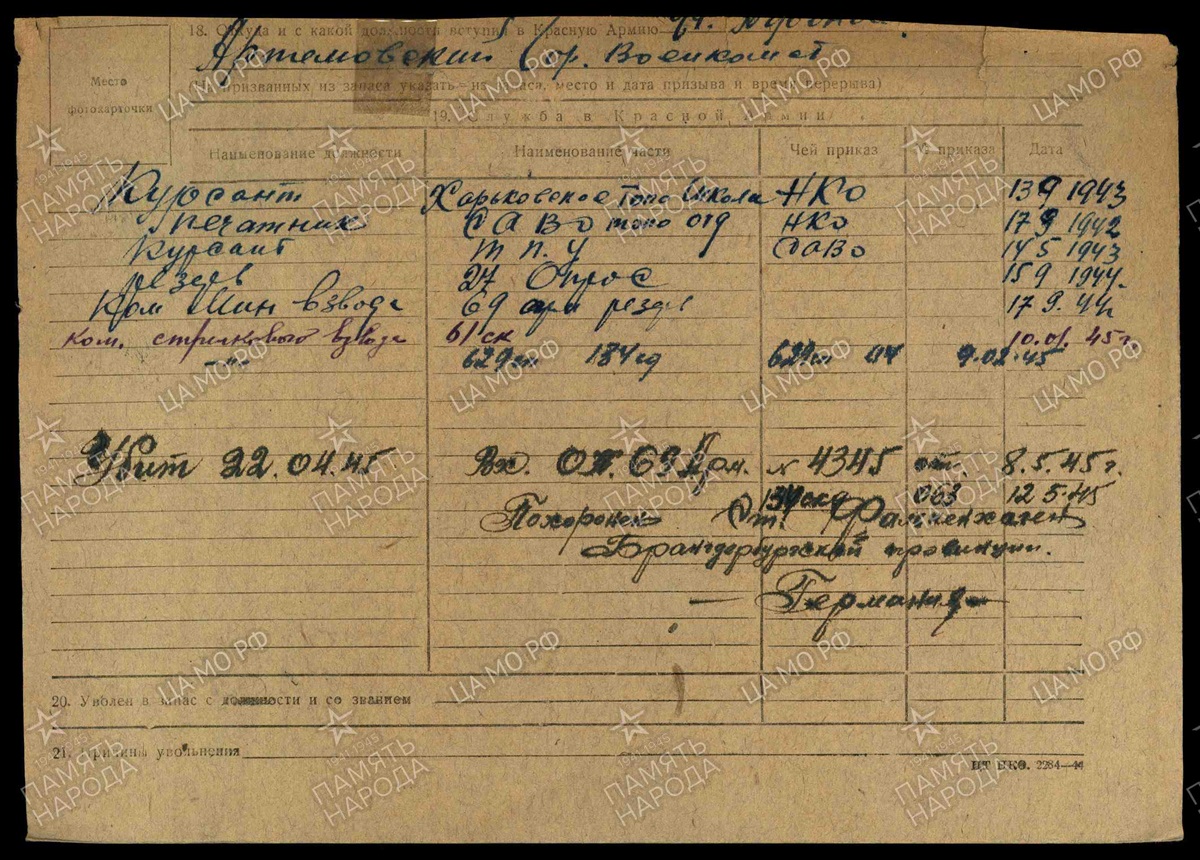 18. Откуда и с какой должности вступил в Красную Армию
Артемовский Гор. Военкомат
(Для призванных из запаса указать— из запаса, место и дата призыва и время перерыва)
Место
фотокарточки
19. Служба в Красной Армии
Наименование должности Наименование части Чей приказ № приказа Дата
Курсант Харьковское Топо Школа НКО 13 9 1943
Печатник САВО топо отд НКО 17 9 1942
Курсант Т П. У САВО 14 5 1943
резерв 27 Опрос 15 9 1944
Ком Мин взвода 69 арм резерв 17 9. 44
Ком. стрелкового взвода 61 ск 10.01.45 г.
—"— 629 сп 134 сд 629 сп 04 9.02.45
Убит 22.04.45 Вх. ОК 69 Арм. № 4345 от. 8.5.45 г.
134 скд 063 12 5.45
Похоронен Ст. Фалкенхаген
Бранденбургской провинции.
— Германия —
20. Уволен в запас с должности и со званием
21. Причины увольнения
ЦТ НКО. 2284—44
ЦА МО РФ
1941-1945
ПАМЯТЬ
НАРОДА